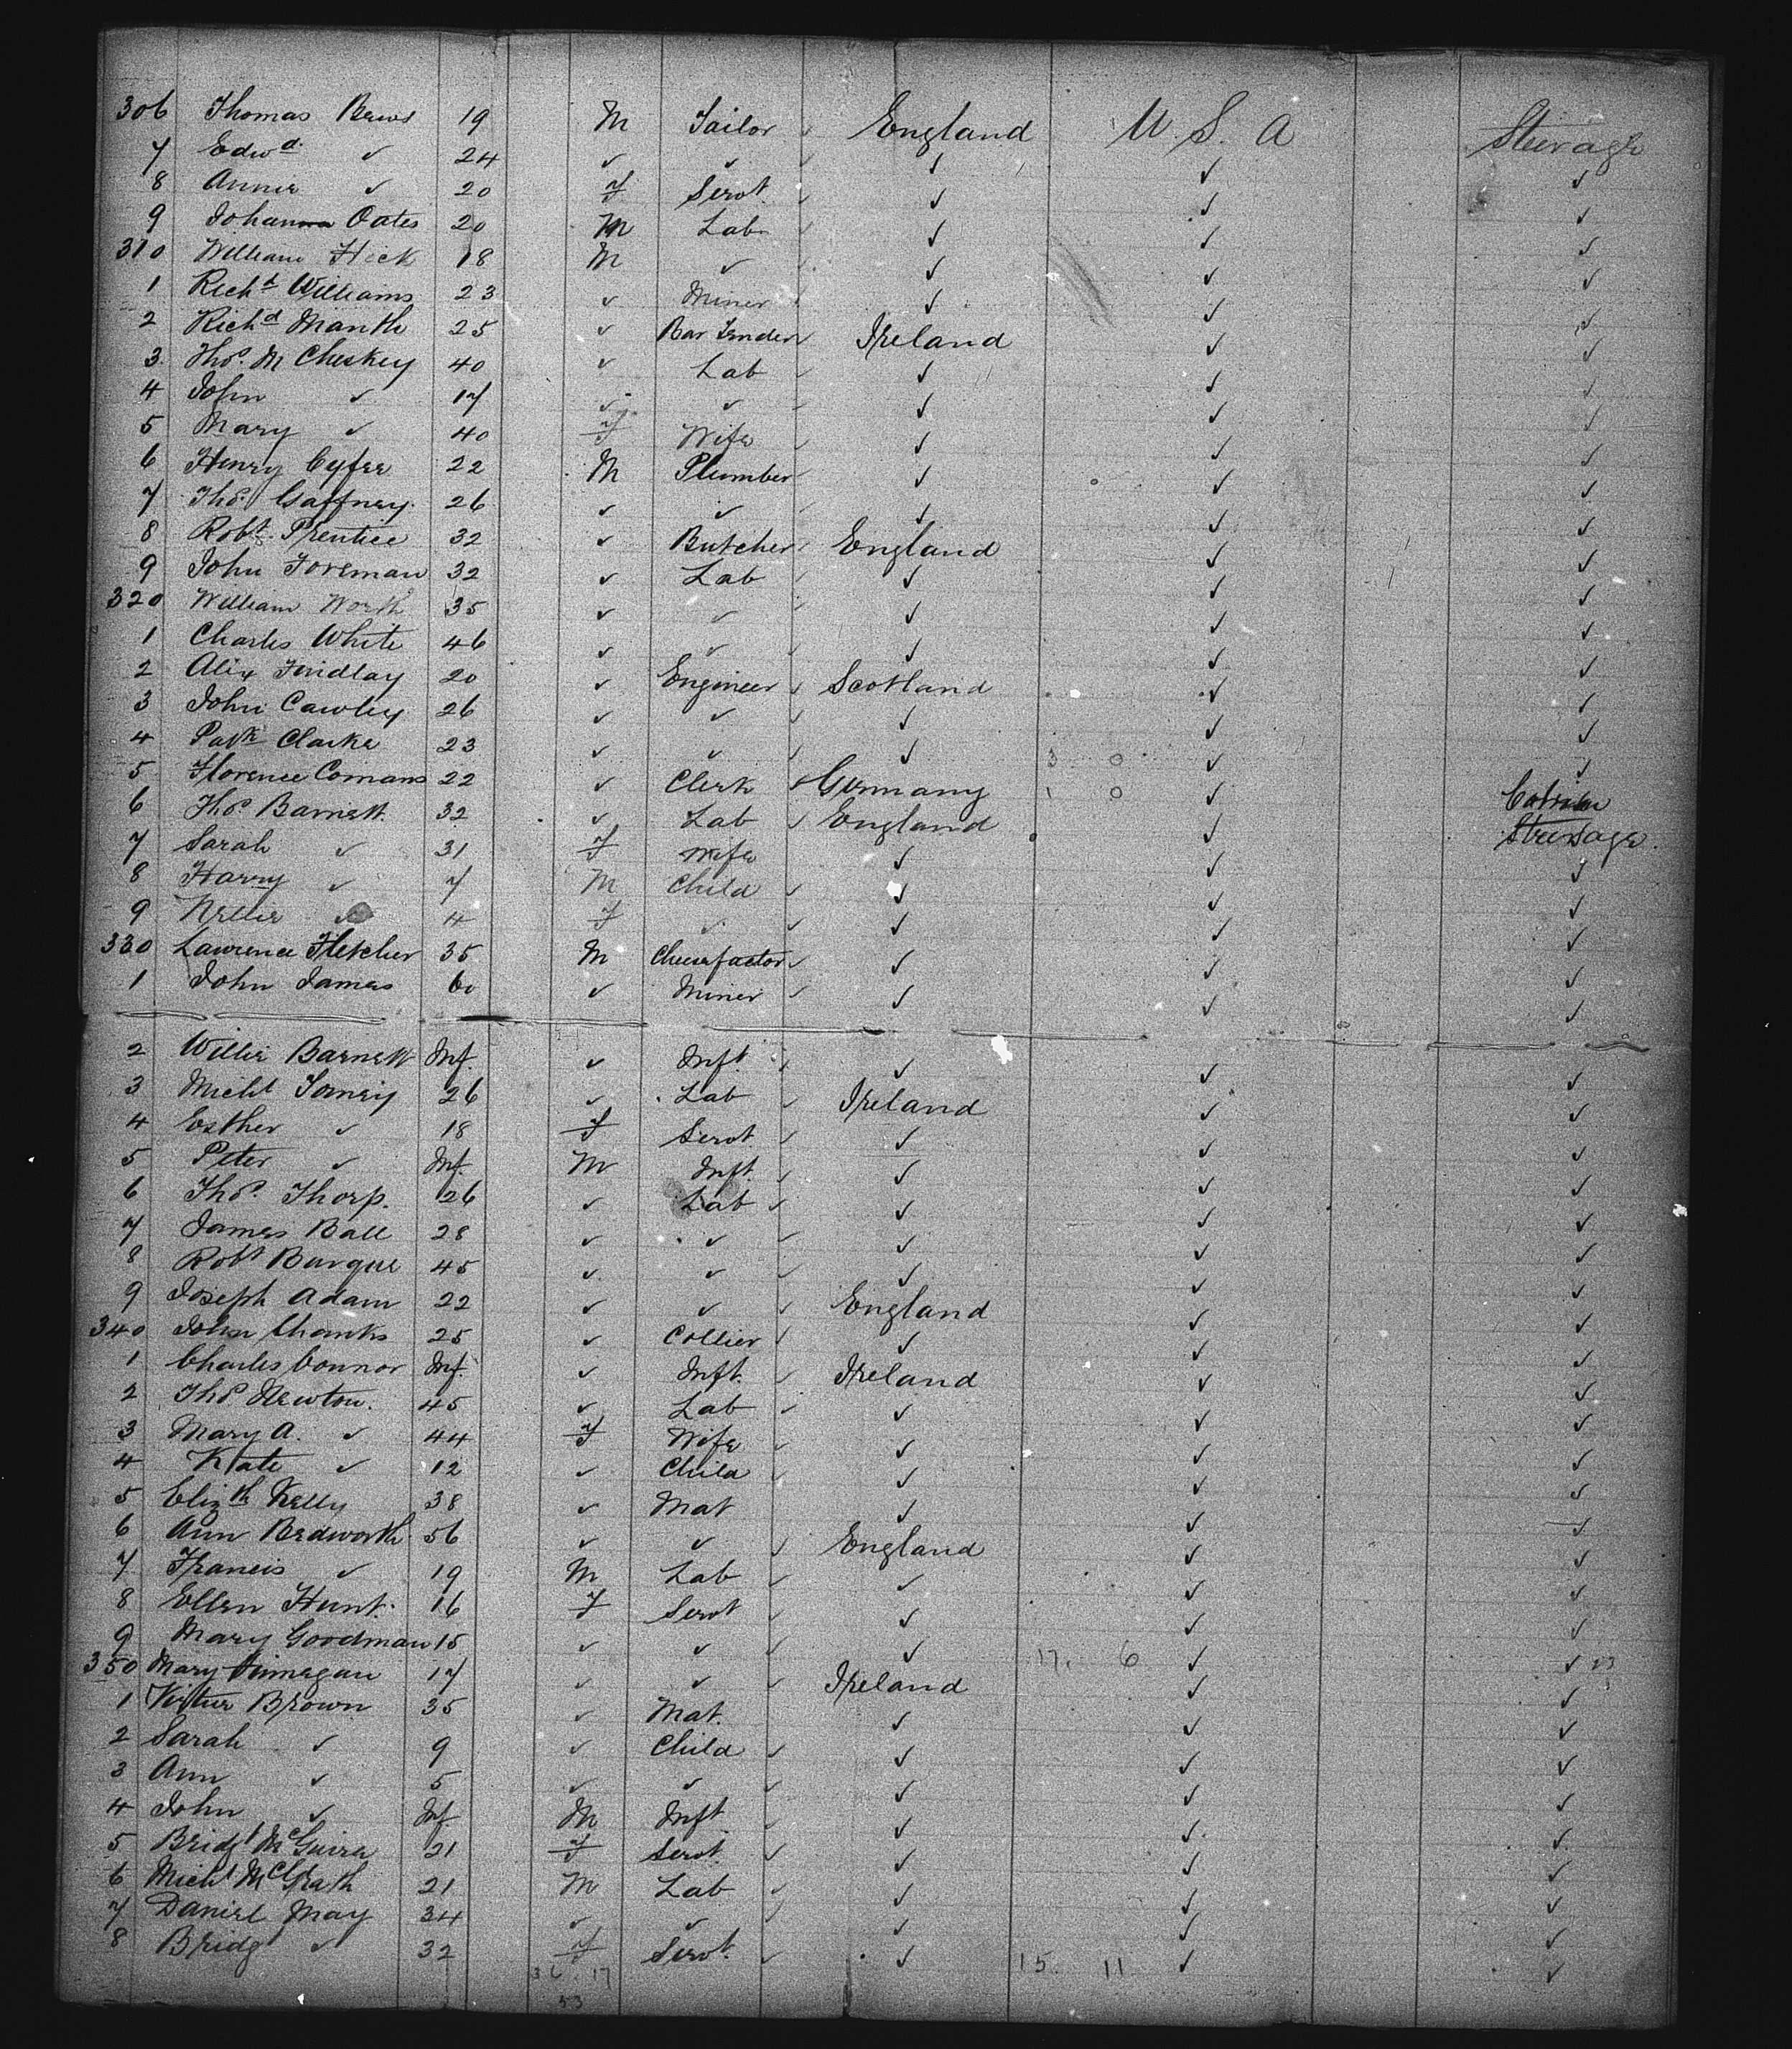 306 Thomas Brews 19 M Tailor ✓ England U. S. A Steerage
7 Edwd ✓ 24 ✓ ✓ ✓ ✓ ✓
8 Annie ✓ 20 F Servt. ✓ ✓ ✓ ✓
9 Johanna Oates 20 M Lab ✓ ✓ ✓ ✓
310 William Hick 18 M ✓ ✓ ✓ ✓ ✓
1 Richd Williams 23 ✓ Miner ✓ ✓ ✓ ✓
2 Richd Manth 25 ✓ Bar Tender ✓ Ireland ✓ ✓
3 Thos. McCheskey 40 ✓ Lab ✓ ✓ ✓ ✓
4 John ✓ 17 ✓ ✓ ✓ ✓ ✓ ✓
5 Mary ✓ 40 F Wife ✓ ✓ ✓ ✓
6 Henry 22 M Plumber ✓ ✓ ✓
7 Thos. Gaffney 26 ✓ ✓ ✓ ✓ ✓ ✓
8 Robt. Prentice 32 ✓ Butcher ✓ England ✓ ✓
9 John Foreman 32 ✓ Lab ✓ ✓ ✓ ✓
320 William Worth 35 ✓ ✓ ✓ ✓ ✓
1 Charles White 46 ✓ ✓ ✓ ✓ ✓ ✓
2 Alex Findlay 20 ✓ Engineer ✓ Scotland ✓ ✓
3 John Cawley 26 ✓ ✓ ✓ ✓ ✓ ✓
4 Patk Clarke 23 ✓ ✓ ✓ ✓ 3 0 ✓ ✓
5 Florence Comans 22 ✓ Clerk ✓ Germany 1 0 ✓ Cabin
6 Thos. Barnett 32 ✓ Lab ✓ England ✓ Steerage.
7 Sarah ✓ 31 F Wife ✓ ✓ ✓
8 Harry ✓ 7 M Child ✓ ✓ ✓ ✓
9 Nellie ✓ 4 F ✓ ✓ ✓ ✓ ✓
330 Lawrence Fletcher 35 M Cheesefactor ✓ ✓ ✓ ✓
1 John James 60 ✓ Miner ✓ ✓ ✓ ✓
2 Willie Barnett Inf. ✓ Inft. ✓ ✓ ✓ ✓
3 Michl 26 ✓ Lab ✓ Ireland ✓ ✓
4 Esther ✓ 18 F Servt ✓ ✓ ✓ ✓
5 Peter ✓ Inf. M Inft. ✓ ✓ ✓ ✓
6 Thos. Thorp. 26 ✓ Lab ✓ ✓ ✓ ✓
7 James Ball 28 ✓ ✓ ✓ ✓ ✓ ✓
8 Robt Burque 45 ✓ ✓ ✓ ✓ ✓ ✓
9 Joseph Adam 22 ✓ ✓ ✓ England ✓ ✓
340 John Shanks 25 ✓ Collier ✓ ✓ ✓ ✓
1 Charles Connor Inf. ✓ Inft. ✓ Ireland ✓ ✓
2 Thos Newton. 45 ✓ Lab ✓ ✓ ✓ ✓
3 Mary A. ✓ 44 F Wife ✓ ✓ ✓ ✓
4 Kate ✓ 12 ✓ Child ✓ ✓ ✓ ✓
5 Elizth Kelly 38 ✓ Mat ✓ ✓ ✓
6 Ann Bedworth 56 ✓ ✓ ✓ England ✓ ✓
7 Francis ✓ 19 M Lab ✓ ✓ ✓ ✓
8 Ellen Hunt. 16 F Servt ✓ ✓ ✓ ✓
9 Mary Goodman 15 ✓ ✓ ✓ ✓ 17. 6 ✓ ✓ 23
350 Mary Finnegan 17 ✓ ✓ ✓ Ireland ✓ ✓
1 Brown 35 ✓ Mat. ✓ ✓ ✓
2 Sarah ✓ 9 ✓ Child ✓ ✓ ✓ ✓
3 Ann ✓ 5 ✓ ✓ ✓ ✓ ✓ ✓
4 John ✓ Inf. M Inft. ✓ ✓ ✓ ✓
5 Bridgt McGuire 21 F Servt. ✓ ✓ ✓ ✓
6 Michl McGrath 21 M Lab ✓ ✓ ✓ ✓
7 Daniel May 34 ✓ ✓ ✓ ✓ ✓ ✓
8 Bridgt ✓ 32 F Servt. ✓ ✓ 15. 11 ✓ ✓
36. 17
53